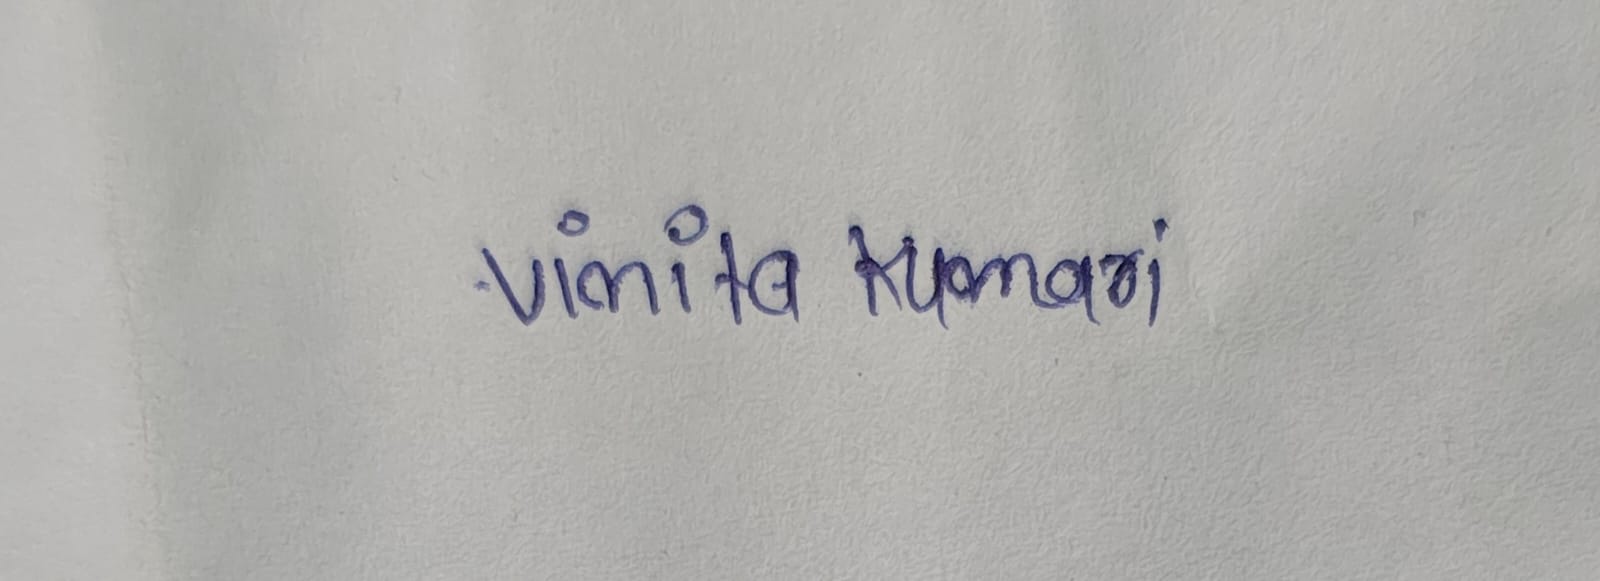 Vinita Kumari